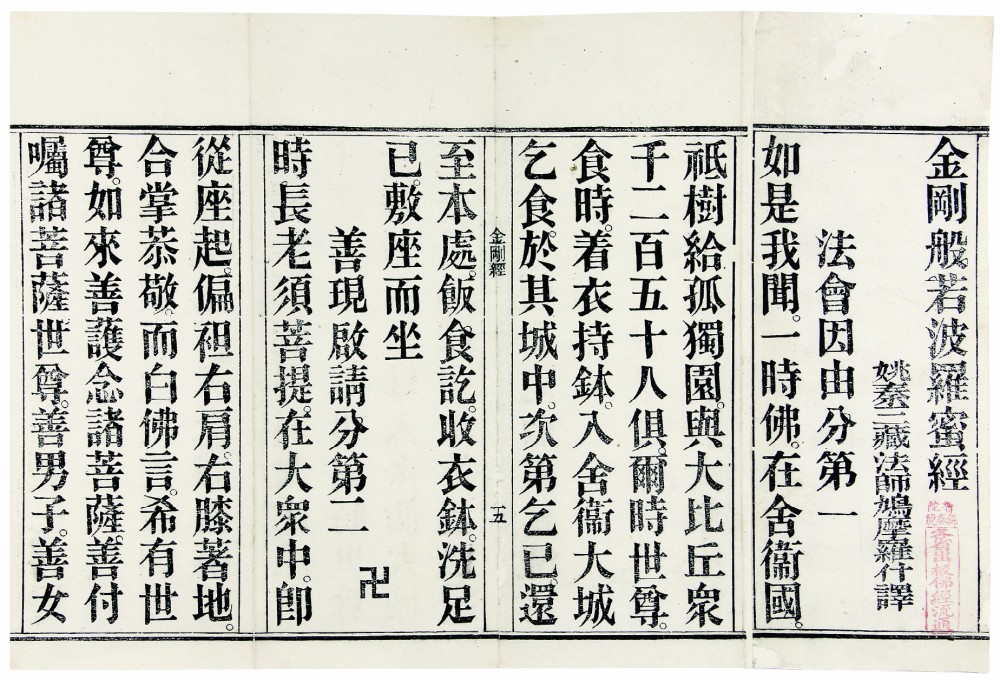 金剛般若波羅蜜經
姚秦三藏法師鳩摩羅什譯
法會因由分第一
如是我聞。一時佛。在舍衞國。
祇樹給孤獨園。與大比丘衆
千二百五十人俱。爾時世尊。
食時。着衣持鉢。入舍衞大城
乞食。於其城中。次第乞已。還
至本處。飯食訖。收衣鉢。洗足
已。敷座而坐
金剛經
五
善現啟請分第二
時長老須菩提。在大衆中。卽
從座起。偏袒右肩。右膝著地。
合掌恭敬。而白佛言。希有世
尊。如來善護念諸菩薩。善付
囑諸菩薩。世尊。善男子。善女